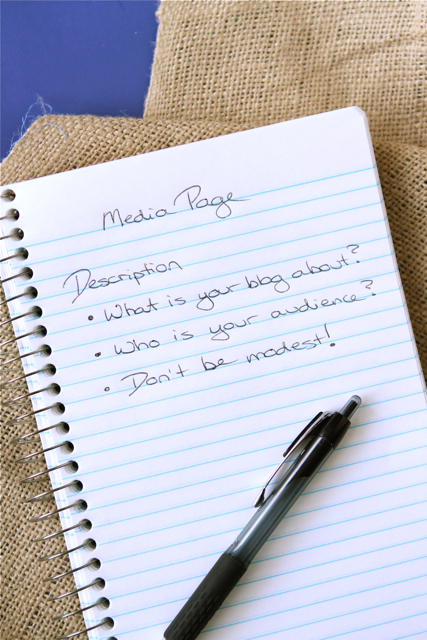 Media Page
Description
• What is your blog about?
• Who is your audience?
• Don't be modest!